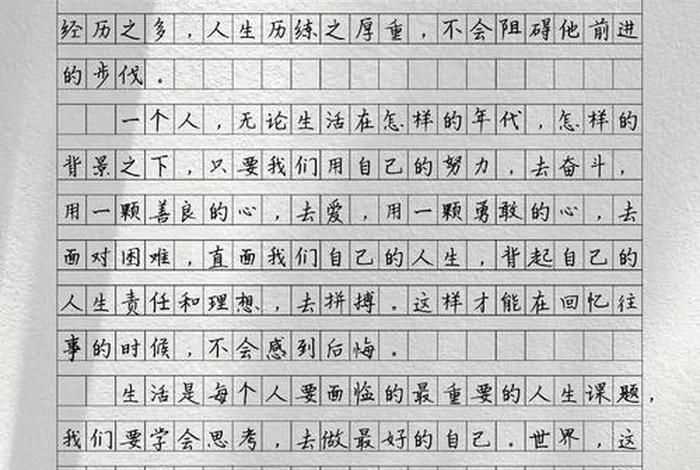 经历之多，人生历练之厚重，不会阻碍他前进
的步伐。
一个人，无论生活在怎样的年代，怎样的
背景之下，只要我们用自己的努力，去奋斗，
用一颗善良的心，去爱，用一颗勇敢的心，去
面对困难，直面我们自己的人生，背起自己的
人生责任和理想，去拼搏。这样才能在回忆往
事的时候，不会感到后悔。
生活是每个人要面临的最重要的人生课题，
我们要学会思考，去做最好的自己。世界，这